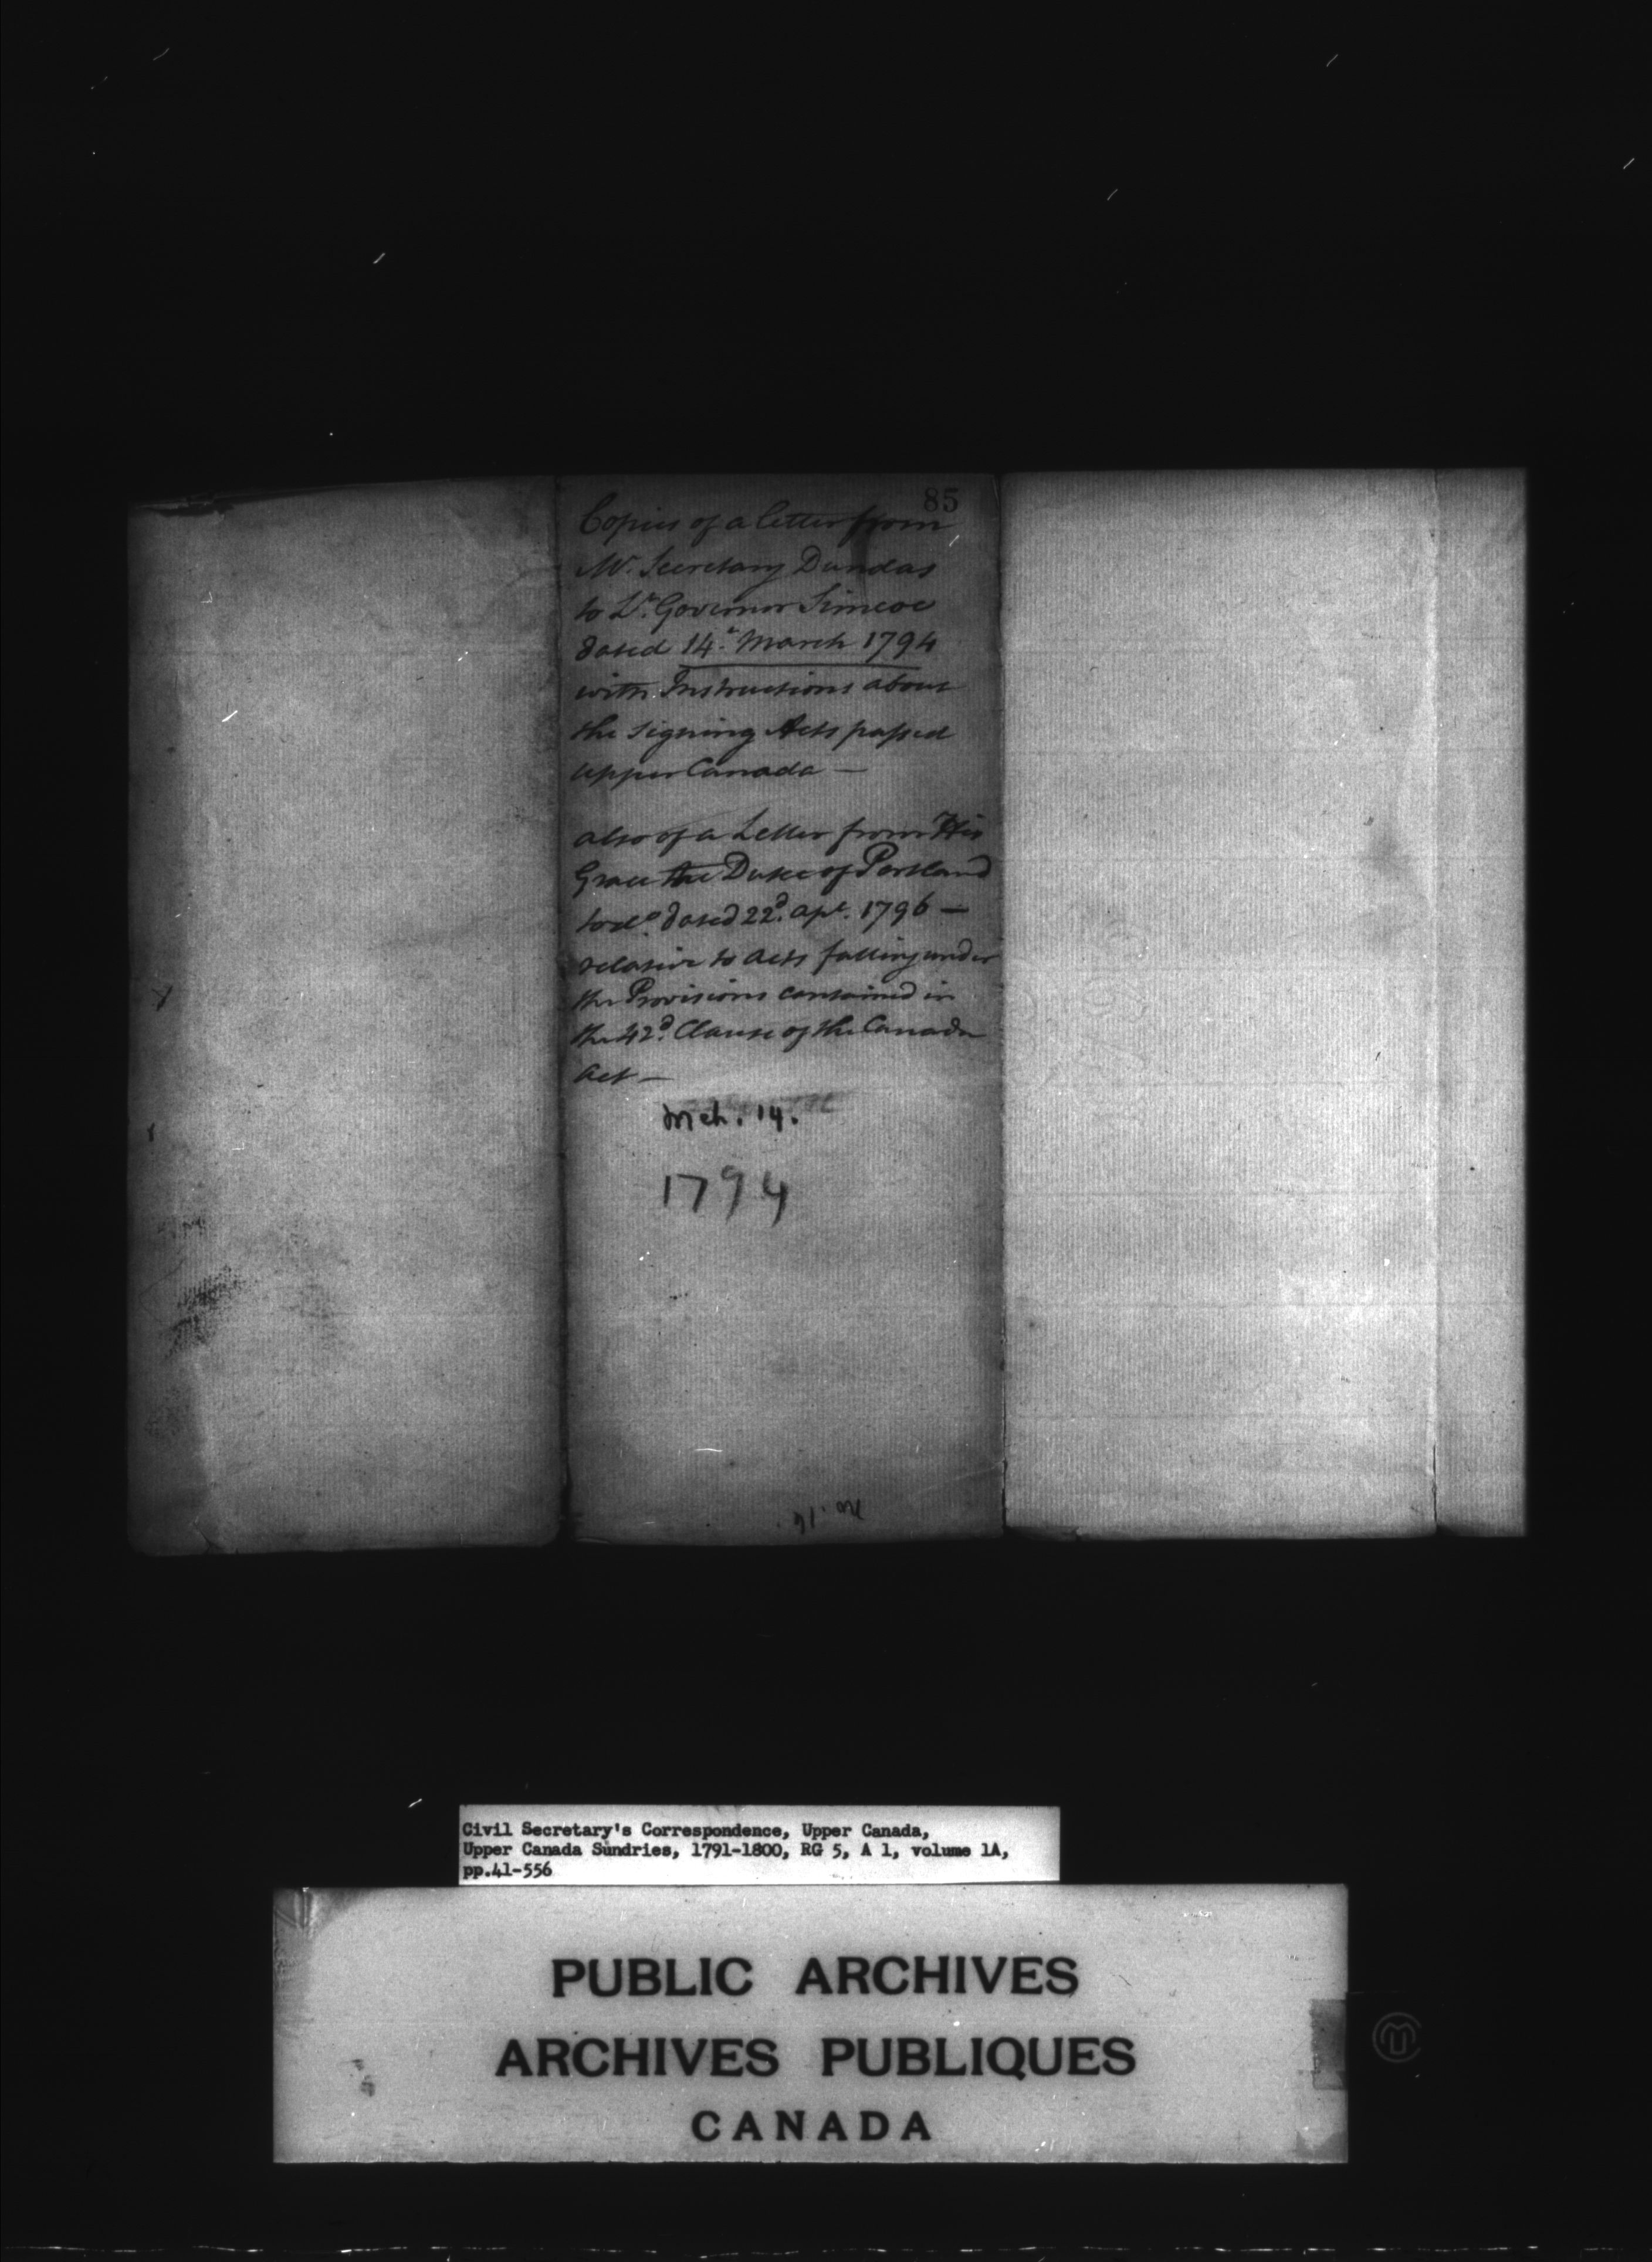 85
Copies of a letter from
Mr. Secretary Dundas
to Lt. Governor Simcoe
dated 14th March 1794
with Instructions about
the signing Acts passed
Upper Canada —
also of a Letter from His
Grace the Duke of Portland
to do. dated 22d. Apl. 1796 —
relative to Acts falling under
the Provisions contained in
the 42d. Clause of the Canada
Act —
Mch. 14.
1794
No. 14.
Civil Secretary's Correspondence, Upper Canada,
Upper Canada Sundries, 1791-1800, RG 5, A 1, volume 1A,
pp.41-556
PUBLIC ARCHIVES
ARCHIVES PUBLIQUES
CANADA